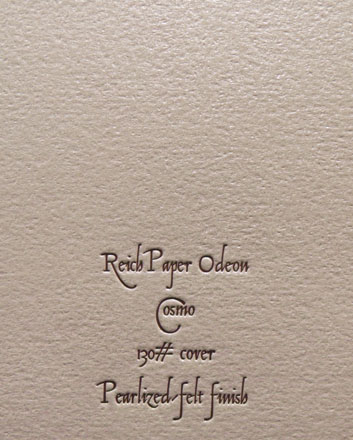 Reich Paper Odeon
Cosmo
130# cover
Pearlized felt finish